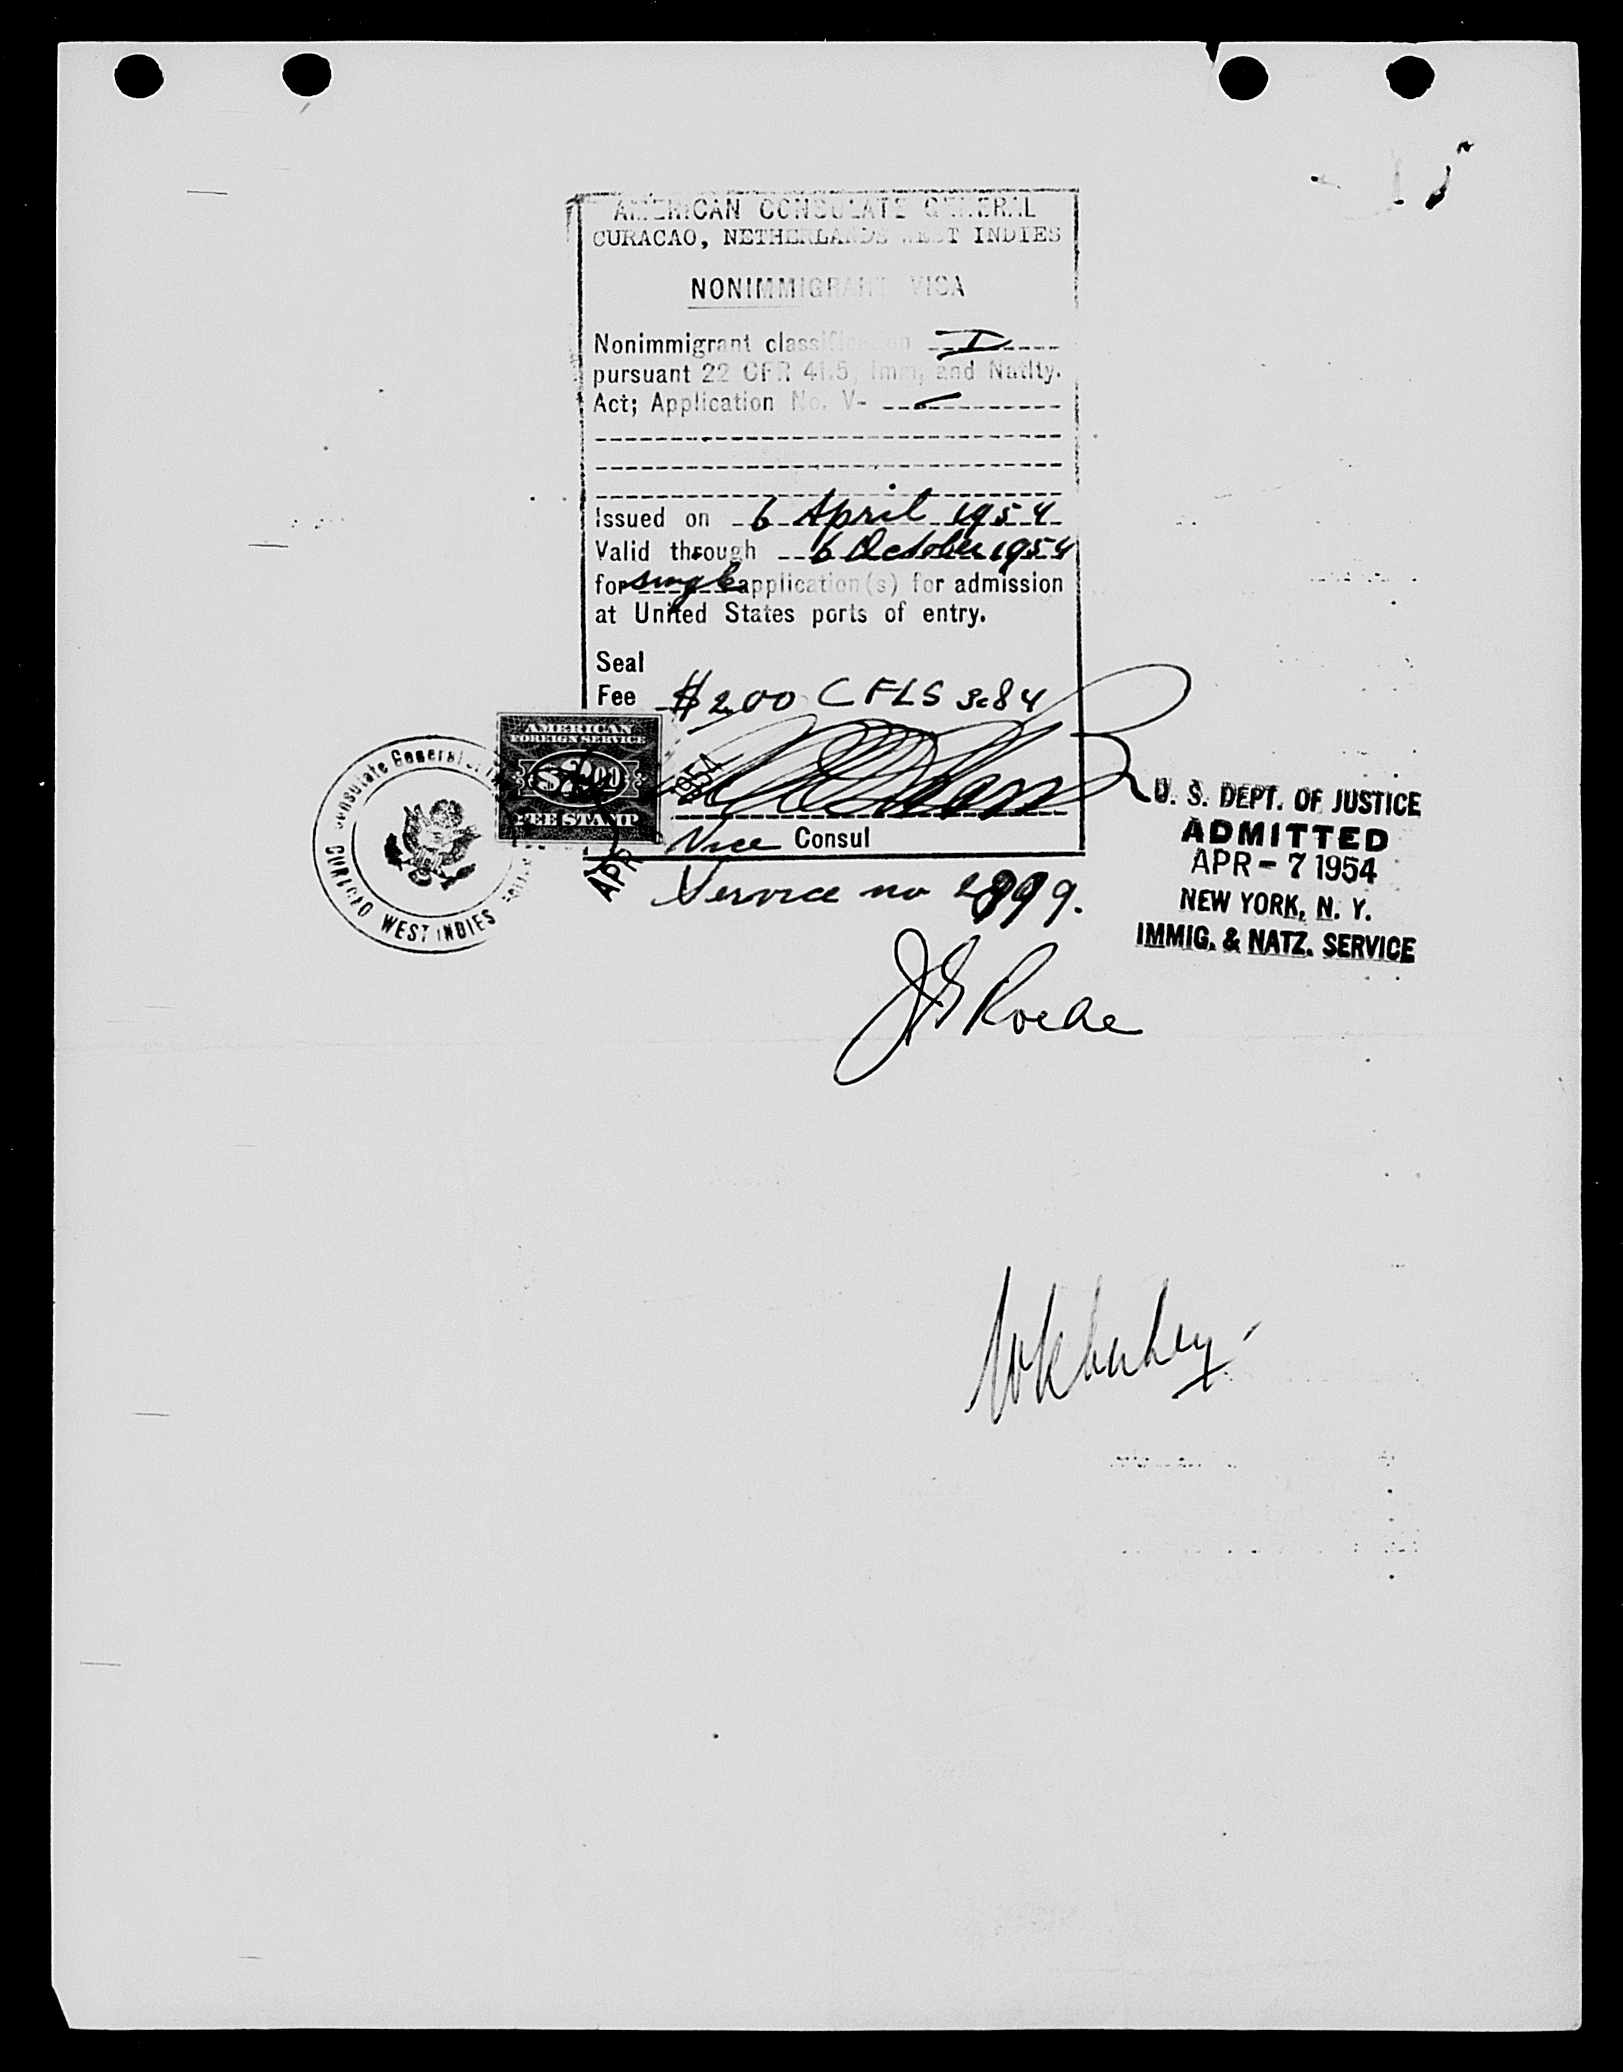 AMERICAN CONSULATE GENERAL
CURACAO, NETHERLANDS WEST INDIES
NONIMMIGRANT VISA
Nonimmigrant classification I
pursuant 22 CFR 41.5, Imm, and Natlty.
Act; Application No. V-
Issued on 6 April 1954
Valid through 6 October 1954
for single application(s) for admission
at United States ports of entry.
Seal
Fee $2.00 CFLS 3.84
AMERICAN
FOREIGN SERVICE
$2.00
FEE STAMP
APR 1954
Vice Consul
Consulate General
CURACAO WEST INDIES
Service no 2899.
U. S. DEPT. OF JUSTICE
ADMITTED
APR - 7 1954
NEW YORK, N. Y.
IMMIG. & NATZ. SERVICE